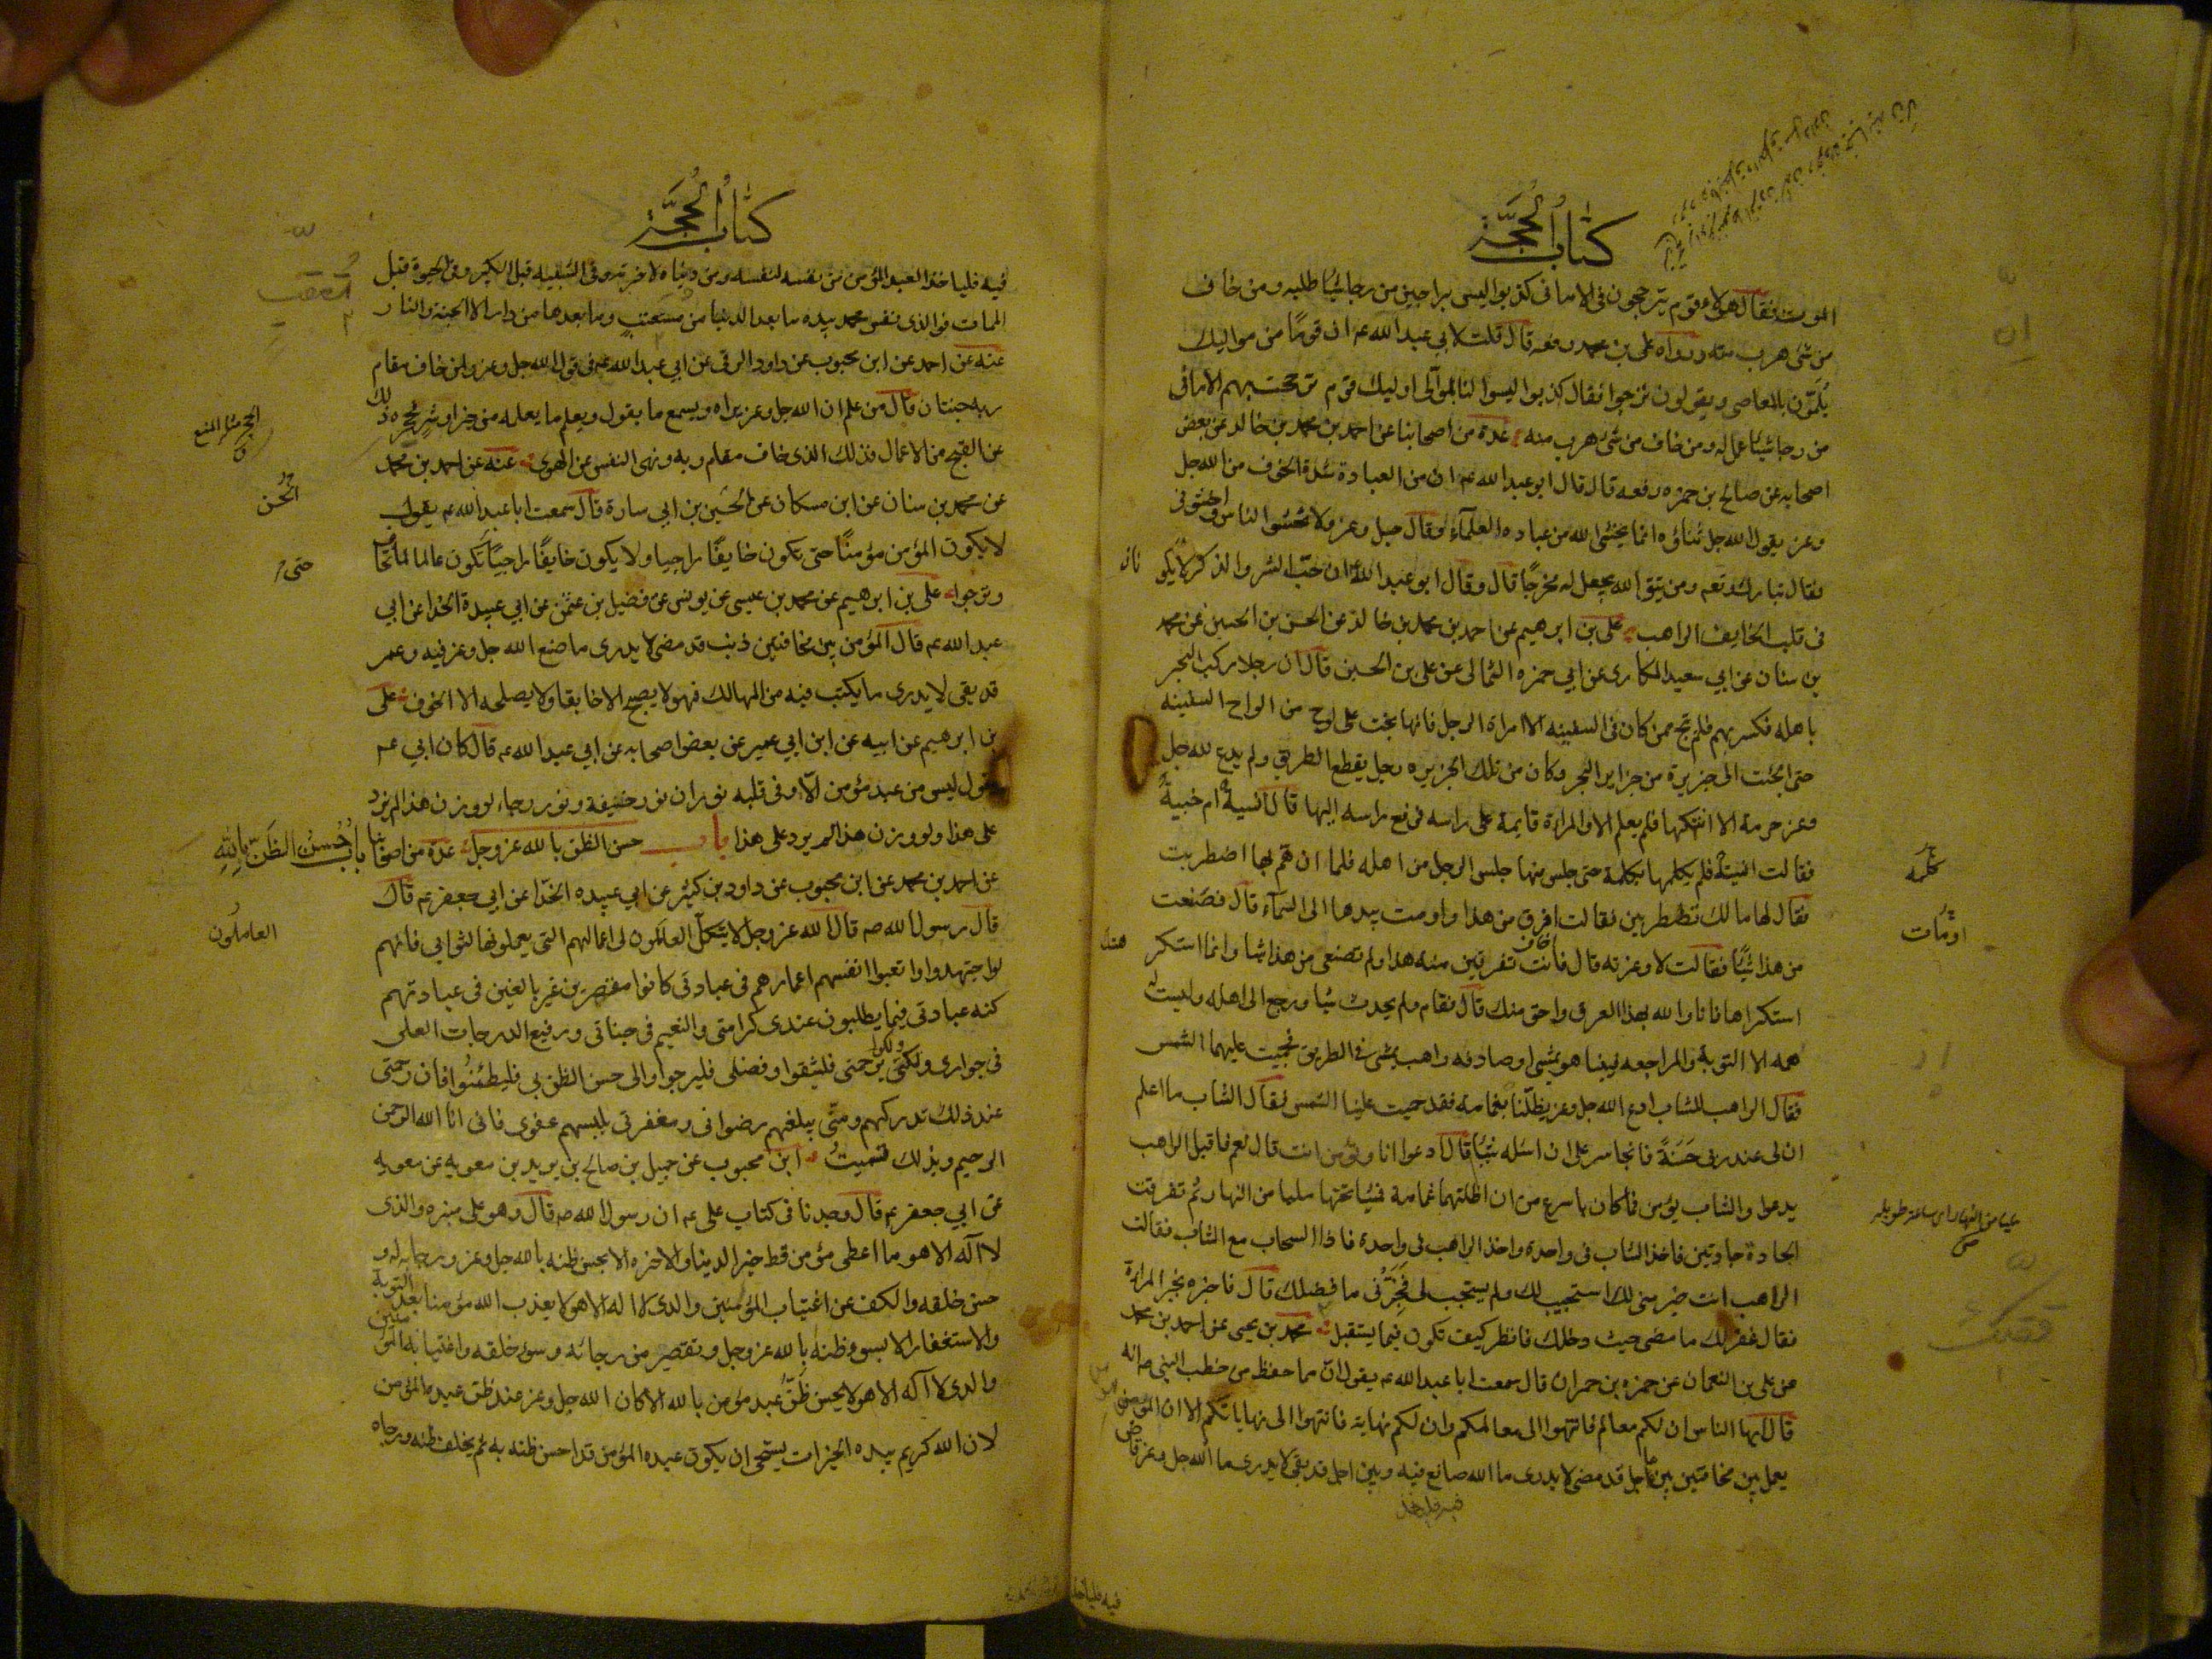 كتاب الحجة
الموت فقال هؤلاء قوم يترجحون فى الامانى كذبوا ليسى براجين من رجا شيئا طلبه ومن خاف
من شئ هرب منه ورواه على بن محمد رفعه قال قلت لابي عبد الله عم ان قوما من مواليك
يلمون بالمعاصى ويقولون نرجوا فقال كذبوا ليسوا لنا بموالى اوليك قوم ترجحت بهم الامانى
من رجا شيئا عمل له ومن خاف من شئ هرب منه عدة من اصحابنا عن احمد بن محمد بن خالد عن بعض
اصحابه عن صالح بن حمزه رفعه قال قال ابو عبد الله عم ان من العبادة شدة الخوف من الله جل
وعز يقول الله جل ثناؤه انما يخشى الله من عباده العلماء وقال جل وعز ولا تخشوا الناس واخشونى
وقال تبارك وتعم ومن يتق الله يجعل له مخرجا قال وقال ابو عبد الله ان حب الشرف والذكر لا يكونان
فى قلب الخايف الراهب على بن ابرهيم عن احمد بن محمد بن خالد عن الحسن بن الحسين عن محمد
بن سنان عن ابي سعيد المكارى عن ابي حمزه الثمالى عن على بن الحسين قال ان رجلا ركب البحر
باهله فكسر بهم فلم ينج ممن كان فى السفينه الا امراة الرجل فانها نجت على لوح من الواح السفينه
حتى الجئت الى جزيرة من جزاير البحر وكان من تلك الجزيره رجل يقطع الطريق ولم يدع لله جل
وعز حرمة الا انتهكها فلم يعلم الا والمراة قايمة على راسه فرفع راسه اليها قال انسية ام جنية
فقالت انسية فلم يكلمها بكلمة حتى جلس منها جلس الرجل من اهله فلما ان هم بها اضطربت
فقال لها مالك تضطربين فقالت افرق من هذا واومت بيدها الى السماء قال فصنعت
من هذا شيئا فقالت لا وعزته قال فانت تفرقين منه هذا ولم تصنعى من هذا شيا وانما استكر هتك
استكراها فانا والله بهذا الفرق واحق منك قال فقام ولم يحدث شيا ورجع الى اهله وليست له
همه الا التوبة والمراجعه فبينا هو يمشى اوصادفه راهب يمشى فى الطريق فحميت عليهما الشمس
فقال الراهب للشاب ادع الله جل وعز يظلنا بغمامة فقد حميت علينا الشمس فقال الشاب ما اعلم
ان لى عند ربى حسنة فاتجاسر على ان اسئله شيئا قال ادعوا انا وتؤمن انت قال نعم فاقبل الراهب
يدعوا والشاب يؤمن فما كان باسرع من ان اظلتهما غمامة فمشيا تحتها مليا من النهار ثم تفرقت
الجادة جادتين فاخذ الشاب فى واحدة واخذ الراهب فى واحدة فاذا السحاب مع الشاب فقالت
الراهب انت خير منى لك استجيب لك ولم يستجب لى فخبرنى ما قصتك قال فاخبره بخبر المراة
فقال غفر لك ما مضى حيث دخلك فانظر كيف تكون فيما يستقبل محمد بن يحيى عن احمد بن محمد
عن على بن النعمان عن حمزه بن حمران قال سمعت ابا عبد الله عم يقول ان مما حفظ من خطب النبى ص انه
قال ايها الناس ان لكم معالم فانتهوا الى معالمكم وان لكم نهاية فانتهوا الى نهايتكم الا ان المؤمن
يعمل بين مخافتين بين اجل قد مضى لا يدرى ما الله صانع فيه وبين اجل قد بقى لا يدرى ما الله جل وعز قاض
فيه فلياخذ
ان
كلمه
اومأت
مليا من النهار اى ساعة طويله
كتاب الحجة
فيه فلياخذ العبد المؤمن من نفسه لنفسه ومن دنياه لاخرته وفى الشبيبه قبل الكبر وفى الحيوة قبل
الممات فوالذى نفس محمد بيده ما بعد الدنيا من مستعتب وما بعدها من دار الا الجنة والنار
عنه عن احمد عن ابن محبوب عن داود الرقى عن ابي عبد الله عم فى قول الله جل وعز ولمن خاف مقام
ربه جنتان قال من علم ان الله جل وعز يراه ويسمع ما يقول ويعلم ما يعمله من خير او شر يحجزه ذلك
عن القبيح من الاعمال فذلك الذى خاف مقام ربه ونهى النفس عن الهوى عنه عن احمد بن محمد
عن محمد بن سنان عن ابن مسكان عن الحسين بن ابي سارة قال سمعت ابا عبد الله عم يقول
لا يكون المؤمن مؤمنا حتى يكون خايفا راجيا ولا يكون خايفا راجيا يكون عاملا لما يخاف
ويرجوا على بن ابرهيم عن محمد بن عيسى عن يونس عن فضيل بن عثمن عن ابي عبيدة الحذا عن ابي
عبد الله عم قال المؤمن بين مخافتين ذنب قد مضى لا يدرى ما صنع الله جل وعز فيه وعمر
قد بقى لا يدرى ما يكتب فيه من المهالك فهو لا يصبح الا خايفا ولا يصلحه الا الخوف على
بن ابرهيم عن ابيه عن ابن ابي عمير عن بعض اصحابه عن ابي عبد الله عم قال كان ابي عم
يقول ليس من عبد مؤمن الا وفى قلبه نوران نور خيفة ونور رجاء لو وزن هذا لم يزد
على هذا ولو وزن هذا لم يزد على هذا باب حسن الظن بالله عز وجل عدة من اصحابنا
عن احمد بن محمد عن ابن محبوب عن داود بن كثير عن ابي عبيده الحذا عن ابي جعفر عم قال
قال رسول الله ص قال الله عز وجل لا يتكل العاملون لى اعمالهم التى يعملونها لثوابى فانهم
لو اجتهدوا واتعبوا انفسهم اعمارهم فى عبادتى كانوا مقصرين غير بالغين فى عبادتهم
كنه عبادتى فيما يطلبون عندى كرامتى والنعيم فى جناتى ورفيع الدرجات العلى
فى جوارى ولكن برحمتى فليثقوا وفضلى فليرجوا والى حسن الظن بى فليطمئنوا فان رحمتى
عند ذلك تدركهم ومنى يبلغهم رضوانى ومغفرتى يلبسهم عفوى فانى انا الله الرحمن
الرحيم وبذلك تسميت ابن محبوب عن جميل بن صالح بن بريد بن معويه عن معويه
عن ابي جعفر عم قال وجدنا فى كتاب على عم ان رسول الله ص قال وهو على منبره والذى
لا اله الا هو ما اعطى مؤمن قط خير الدينا والاخره الا بحسن ظنه بالله جل وعز ورجايه له و
حسن خلقه والكف عن اغتياب المؤمنين والذى لا اله الا هو لا يعذب الله مؤمنا بعد التوبة
والاستغفار الا بسوء ظنه بالله عز وجل وتقصير من رجائه وسوء خلقه واغتيابه المؤمنين
والذى لا اله الا هو لا يحسن ظن عبد مؤمن بالله الا كان الله جل وعز عند ظن عبده المؤمن
لان الله كريم بيده الخيرات يستحى ان يكون عبده المؤمن قد احسن ظنه به ثم يخلف ظنه ورجاه
الحجر مثلا المنع
الحسن
حتى
باب حسن الظن بالله
العاملون
فيه فلياخذ